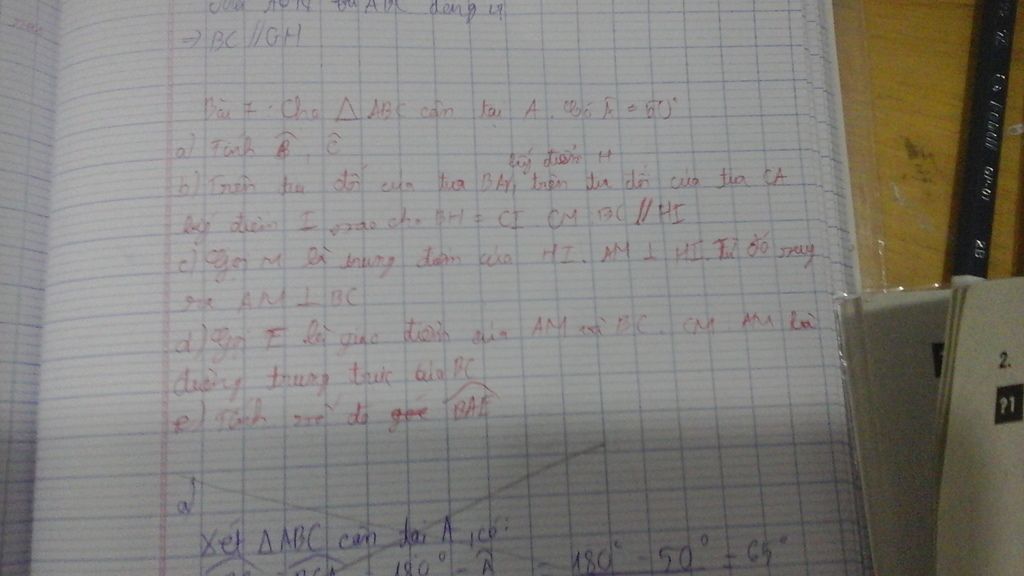 ⇒ BC // GH
Bài 7. Cho △ ABC cân tại A. có Â = 50°
a) Tính B̂, Ĉ
lấy điểm H
b) Trên tia đối của tia BA, trên tia đối của tia CA
lấy điểm I sao cho BH = CI. CM BC // HI
c) Gọi M là trung điểm của HI. AM ⊥ HI. Từ đó suy
ra AM ⊥ BC
d) Gọi F là giao điểm của AM và BC. CM AM là
đường trung trực của BC
e) Tính số đo góc BAF
a)
Xét △ABC cân tại A, có:
= 180° - Â = 180° - 50° = 65°
2B
2.
?1